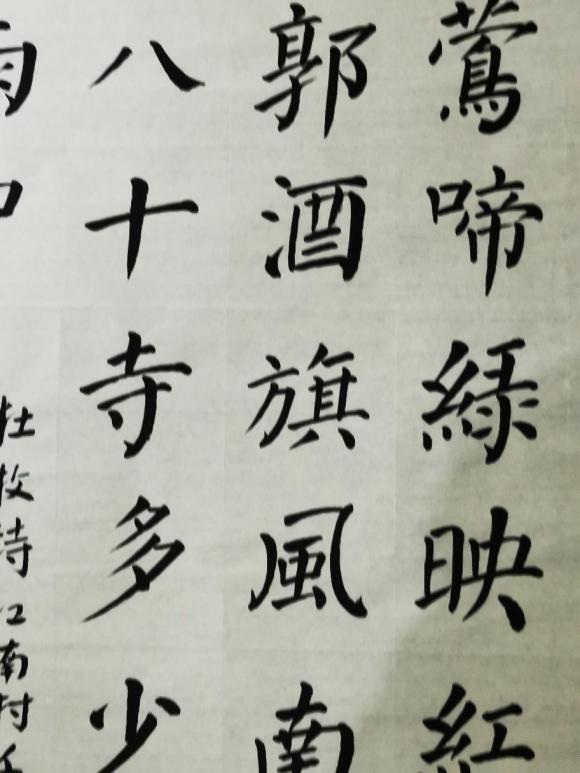 鶯啼綠映紅
郭酒旗風南
八十寺多少
雨中
杜牧詩江南村